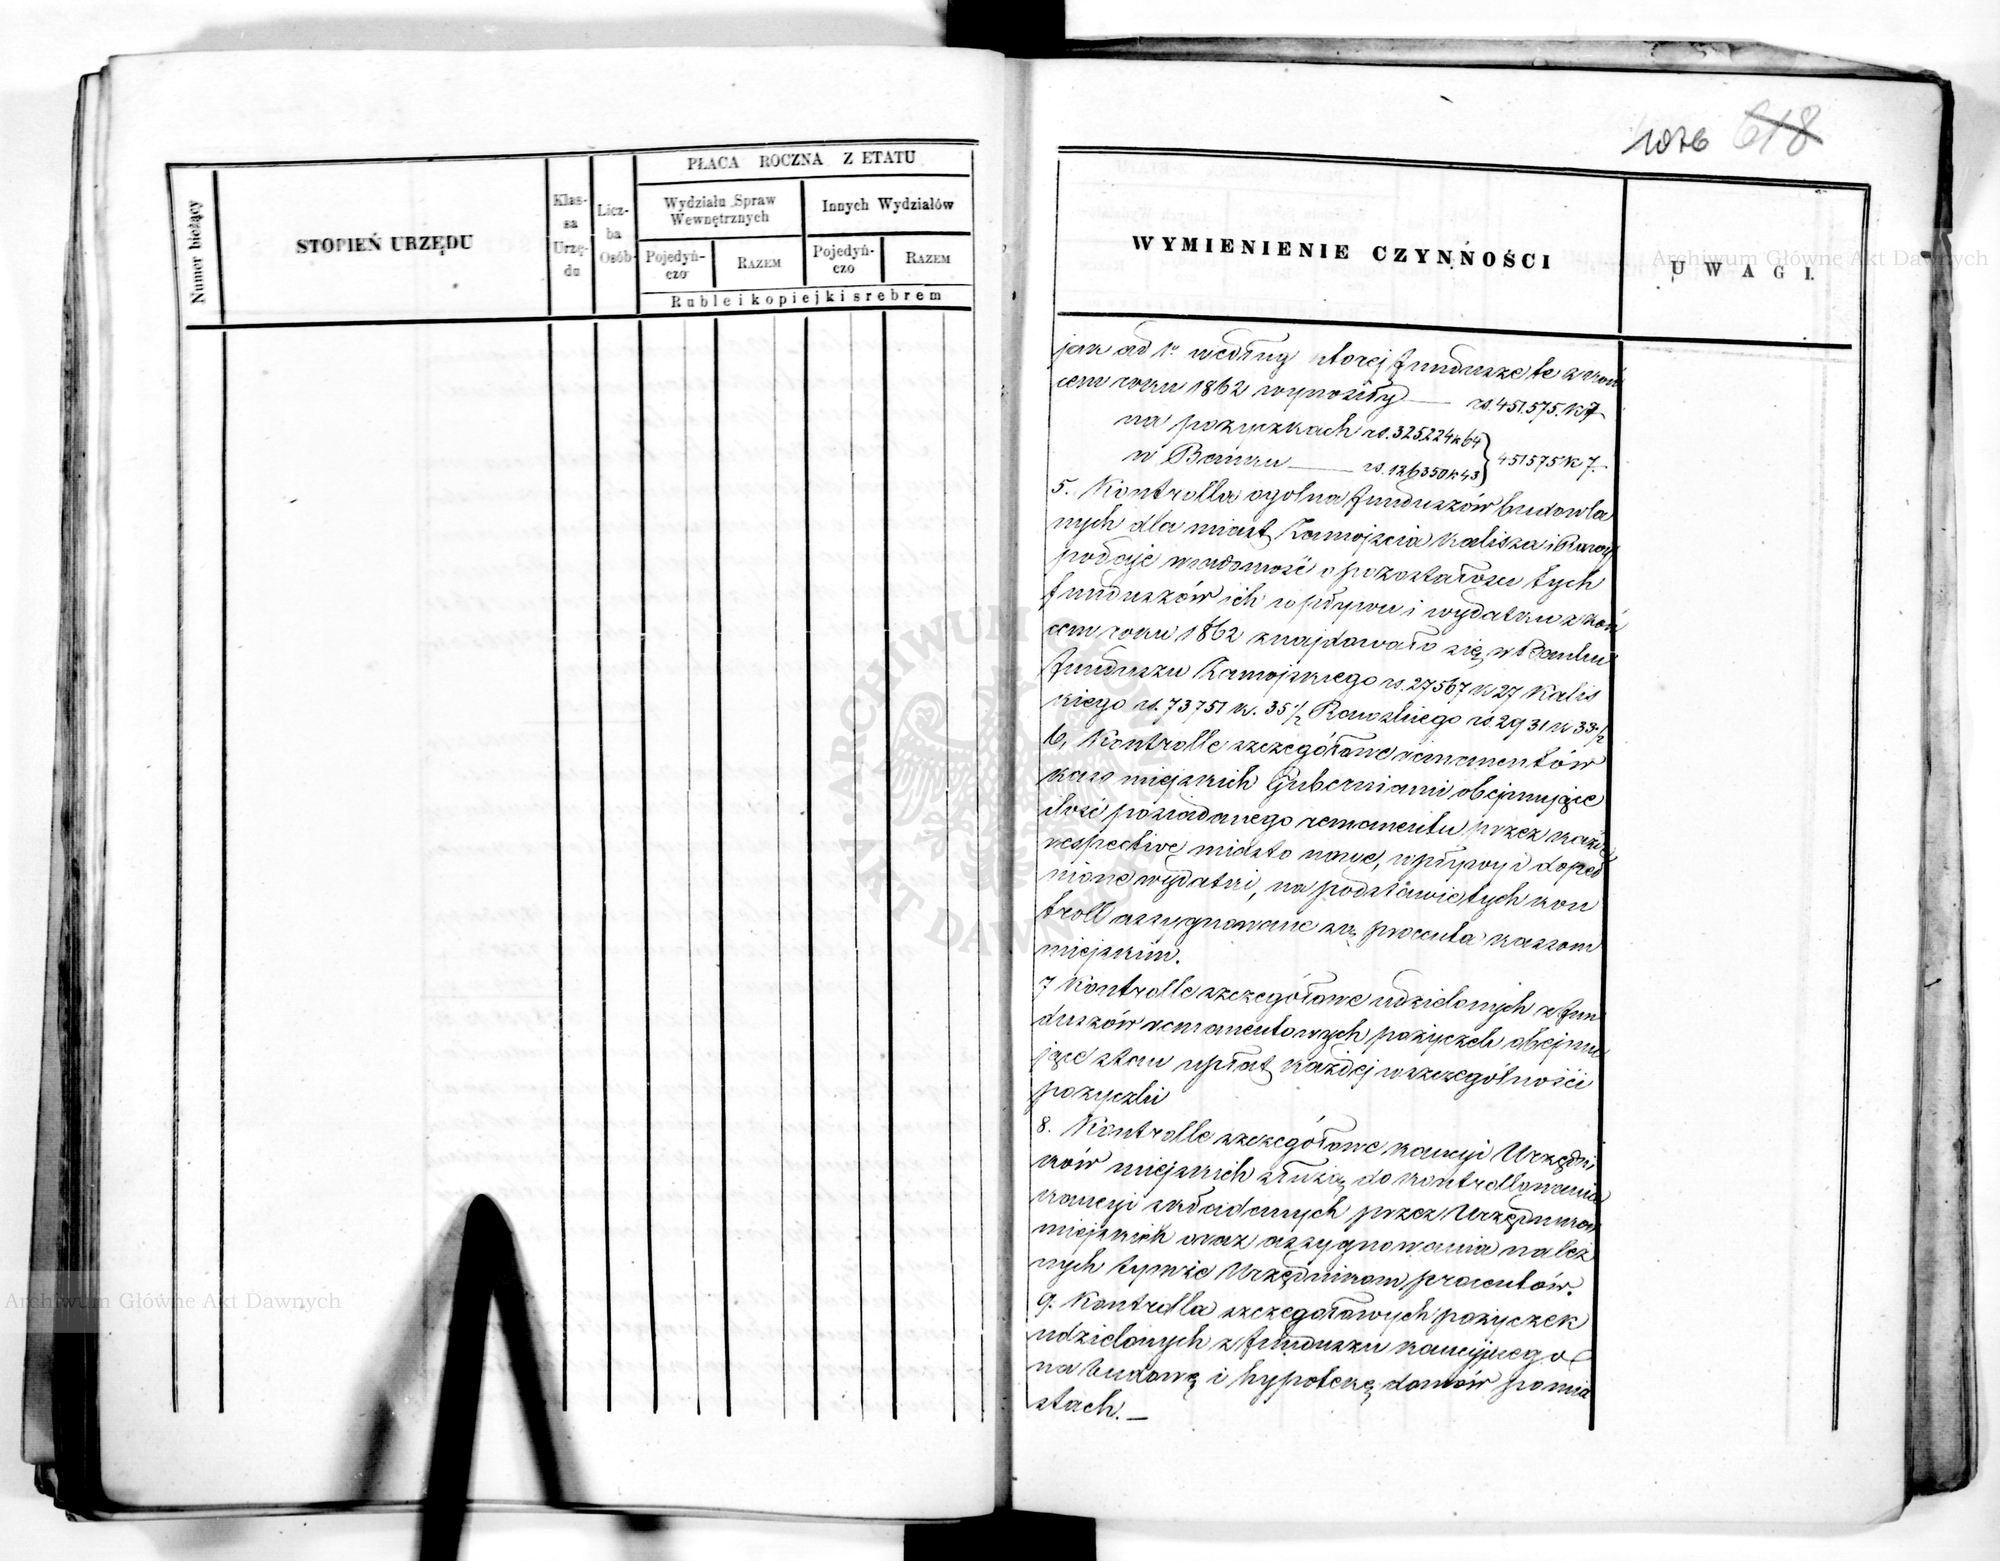 PŁACA ROCZNA Z ETATU
Numer bieżący
STOPIEŃ URZĘDU
Klas-
sa
Urzę-
du
Licz-
ba
Osób
Wydziału Spraw
Wewnętrznych
Innych Wydziałów
Pojedyń-
czo
RAZEM
Pojedyń-
czo
RAZEM
Ruble i kopiejki srebrem
1076 618
WYMIENIENIE CZYNNOŚCI
UWAGI.
jak ad 1º według której fundusze te z koń
cem roku 1862 wynosiły — rs. 451.575. k 7
na pożyczkach rs. 325224 k 64
w Banku — rs. 126350 k 43 } 451575 k 7.
5. Kontrolla ogólna funduszów budowla
nych dla miast Zamojscia Kalisza i Rawy
podaje wiadomość o pozostałości tych
funduszów ich wpływu i wydatku z koń
cem roku 1862 znajdowało się w Banku
funduszu Zamojskiego rs. 27567 k 27 Kalis
kiego rs. 73751 k. 35 1/2 Rawskiego rs. 2931 k 33 1/2
6, Kontrolle szczegółowe remanentów
kass miejskich Guberniami obejmujące
ilość posiadanego remanentu przez każde
respective miasto nowe, wpływy i dopeł
nione wydatki, na podstawie tych kon
troll assygnowane są procenta kassom
miejskim.
7 Kontrolle szczegółowe udzielonych z fun
duszów remanentowych pożyczek obejmu
jące stan wpłat każdej w szczególności
pożyczki
8. Kontrolle szczegółowe kaucyi Urzędni
ków miejskich służą do kontrollowania
kaucyi składanych przez Urzędników
miejskich oraz assygnowania należ
nych tymże Urzędnikom procentów.
9. Kontrolla szczegółowych pożyczek
udzielonych z funduszu kaucyjnego
na budowę i hypotekę domów po mia
stach. —
Archiwum Główne Akt Dawnych
Archiwum Główne Akt Dawnych
ARCHIWUM GŁÓWNE AKT DAWNYCH